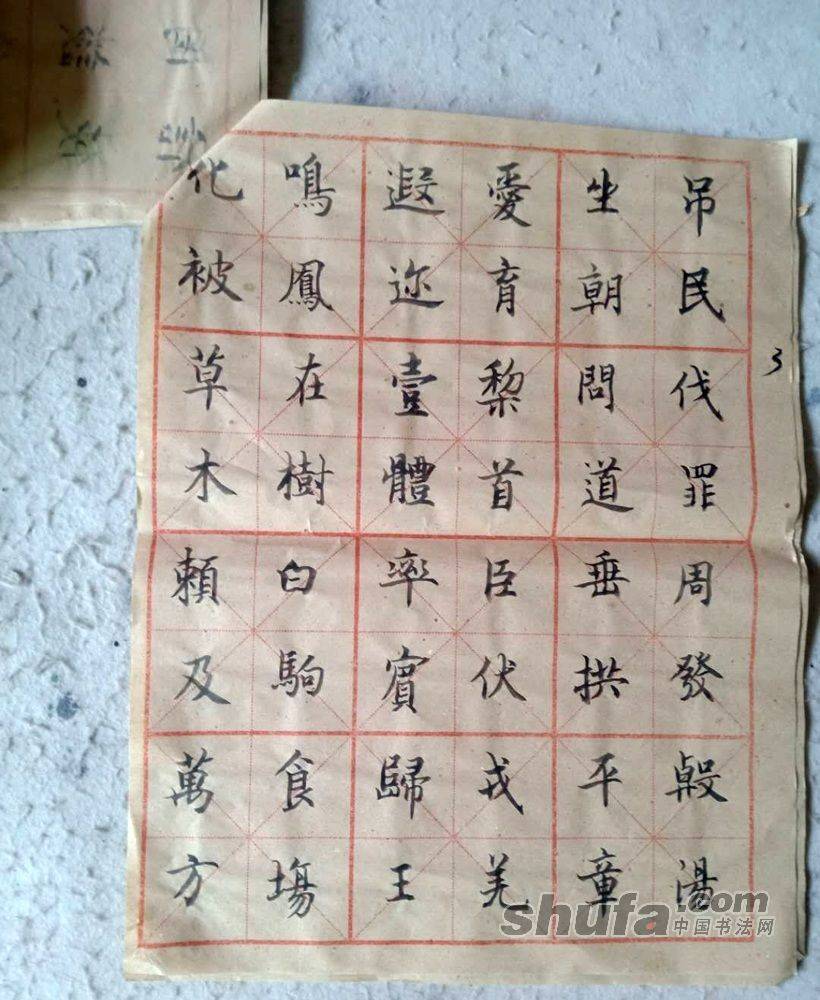 吊民伐罪周發殷湯
坐朝問道垂拱平章
愛育黎首臣伏戎羌
遐迩壹體率賓歸王
鳴鳳在樹白駒食場
化被草木賴及萬方
3
shufa.com
中国书法网